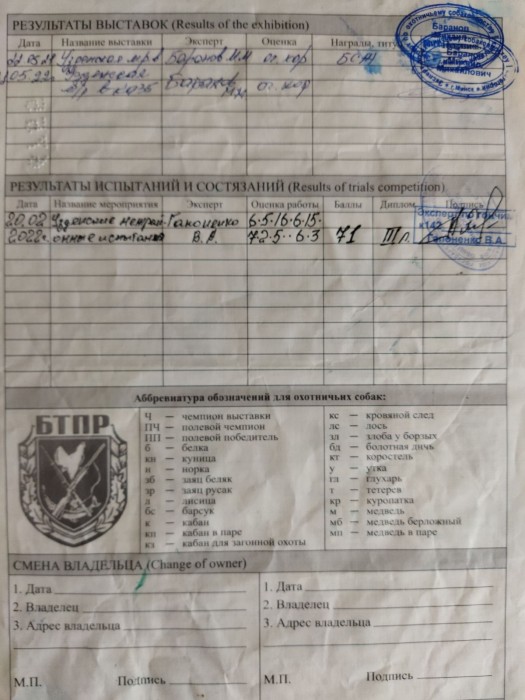 РЕЗУЛЬТАТЫ ВЫСТАВОК (Results of the exhibition)
Дата Название выставки Эксперт Оценка Награды,
Узденская Баранов М.И оч.хор
Узденская оч.хор
РЕЗУЛЬТАТЫ ИСПЫТАНИЙ И СОСТЯЗАНИЙ (Results of trials competition)
Дата Название мероприятия Эксперт Оценка работы Баллы Диплом Подпись
20.02 Узденские Гапоненко 6·5·16·6·15·
2022г. испытания В.А. 7·2·5··6·3 71 III
Эксперт
Гапоненко В.А.
Аббревиатура обозначений для охотничьих собак:
БТПР
Ч — чемпион выставки
ПЧ — полевой чемпион
ПП — полевой победитель
б — белка
кн — куница
н — норка
зб — заяц беляк
зр — заяц русак
л — лисица
бс — барсук
к — кабан
кп — кабан в паре
кз — кабан для загонной охоты
кс — кровяной след
лс — лось
зл — злоба у борзых
бд — болотная дичь
кт — коростель
у — утка
гл — глухарь
т — тетерев
кр — куропатка
м — медведь
мб — медведь берложный
мп — медведь в паре
СМЕНА ВЛАДЕЛЬЦА (Change of owner)
1. Дата
2. Владелец
3. Адрес владельца
М.П. Подпись
1. Дата
2. Владелец
3. Адрес владельца
М.П. Подпись